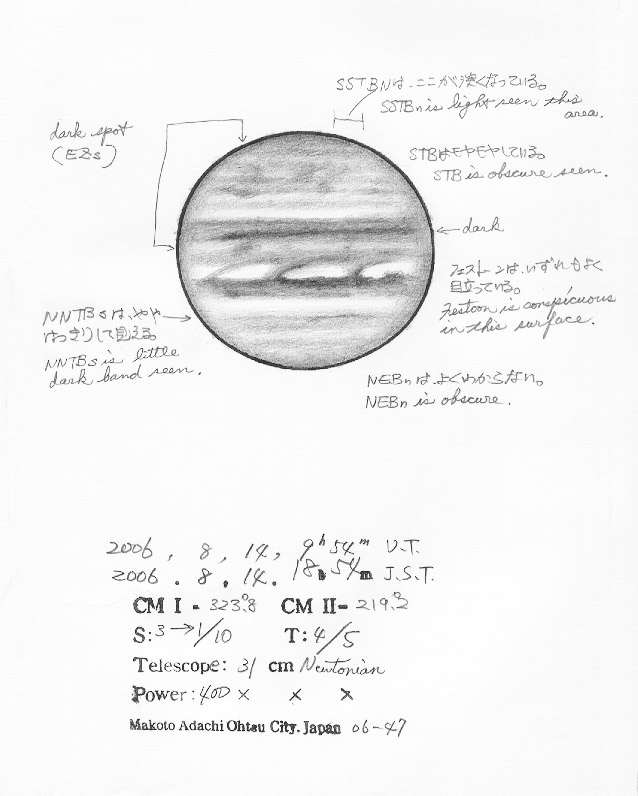 SSTBnは、ここが淡くなっている。
SSTBn is light seen this
area.
dark spot
(EZs)
STBはモヤモヤしている。
STB is obscure seen.
dark
フェストーンは、いずれもよく
目立っている。
Festoon is conspicuous
in this surface.
NNTBsは、やや
はっきりして見える。
NNTBs is little
dark band seen.
NEBnは、よくわからない。
NEBn is obscure.
2006, 8, 14, 9h 54m U.T.
2006. 8. 14. 18h 54m J.S.T.
CM I - 323.°8 CM II- 219.°2
S: 3→1/10 T: 4/5
Telescope: 31 cm Newtonian
Power: 400 × × ×
Makoto Adachi Ohtsu City. Japan 06-47